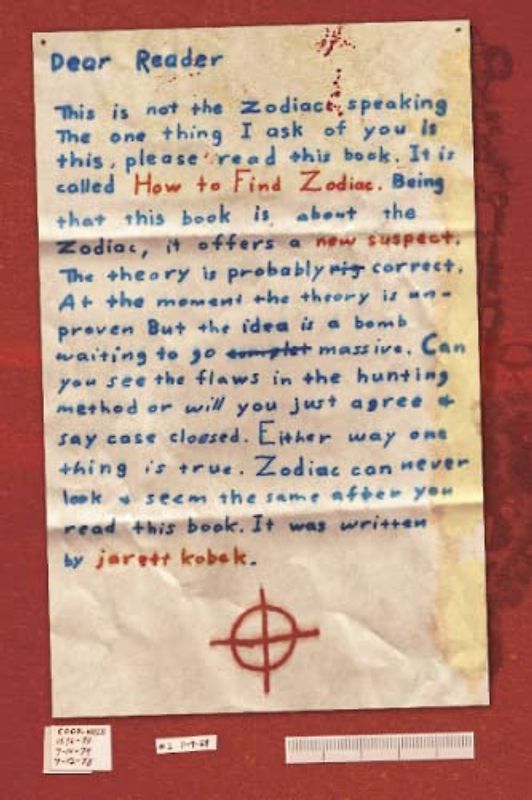 Dear Reader
This is not the zodiac speaking
The one thing I ask of you is
this, please read this book. It is
called How to Find Zodiac. Being
that this book is about the
Zodiac, it offers a new suspect.
The theory is probably rig correct.
At the moment the theory is un-
proven But the idea is a bomb
waiting to go complet massive. Can
you see the flaws in the hunting
method or will you just agree &
say case cloosed. Either way one
thing is true. Zodiac can never
look & seem the same after you
read this book. It was written
by jarett kobek.